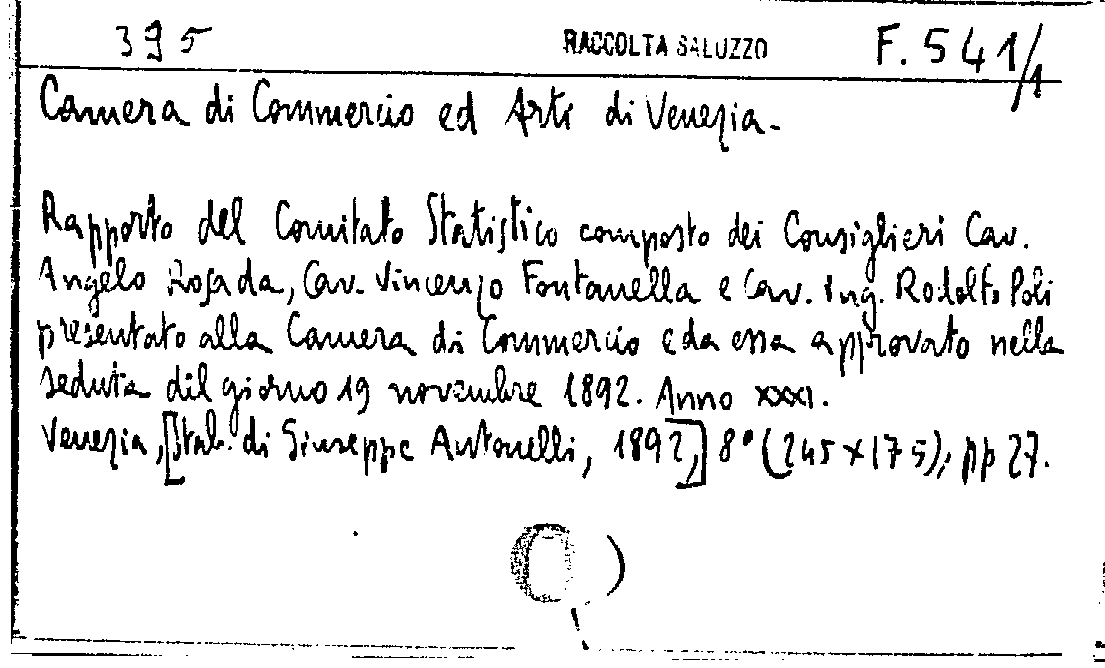 395 RACCOLTA SALUZZO F. 541/1
Camera di Commercio ed Arti di Venezia.
Rapporto del Comitato Statistico composto dei Consiglieri Cav.
Angelo Rosada, Cav. Vincenzo Fontanella e Cav. Ing. Rodolfo Poli
presentato alla Camera di Commercio e da essa approvato nella
seduta dil giorno 19 novembre 1892. Anno XXXI.
Venezia, [Stab. di Giuseppe Antonelli, 1892,] 8° (245×175); pp 27.